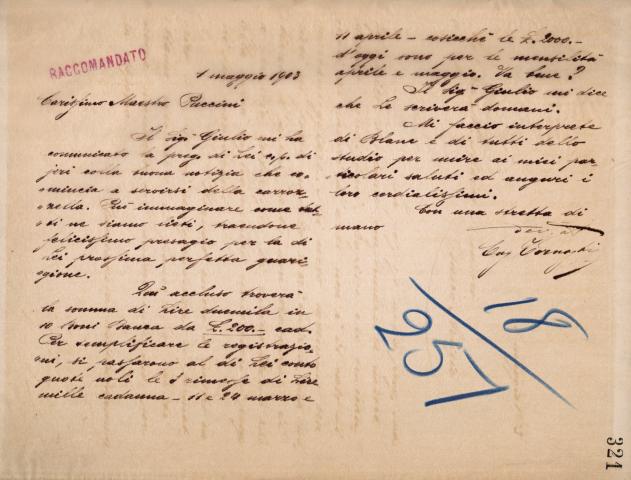 RACCOMANDATO
1 maggio 1903
Carissimo Maestro Puccini
Il Sigr Giulio mi ha
comunicato la preg. di Lei c.p. di
jeri colla buona notizia che co-
mincia a servirsi della carroz-
zella. Può immaginare come tut-
ti ne siamo lieti, traendone
felicissimo presagio per la di
Lei prossima perfetta guari-
gione.
Qui accluso troverà
la somma di Lire duemila in
10 buoni banca da L. 200.- cad.
Per semplificare le registrazio-
ni, si passarono al di Lei conto
quote noli le 3 rimesse di Lire
mille cadauna - 11 e 24 marzo e
11 aprile - cosicchè le L. 2000.-
d'oggi sono per le mensilità
aprile e maggio. Va bene?
Il Sigr Giulio mi dice
che Le scriverà domani.
Mi faccio interprete
di Blanc e di tutti dello
studio per unire ai miei par-
ticolari saluti ed auguri i
loro cordialissimi.
Con una stretta di
mano
18/251
321